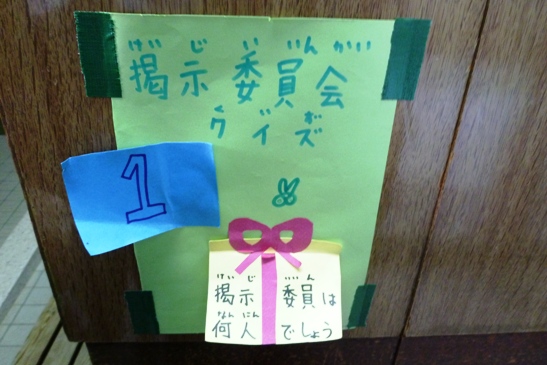 けい じ い いん かい
掲示委員会
クイズ
1
けい じ い いん
掲示 委員は
なん にん
何人 でしょう